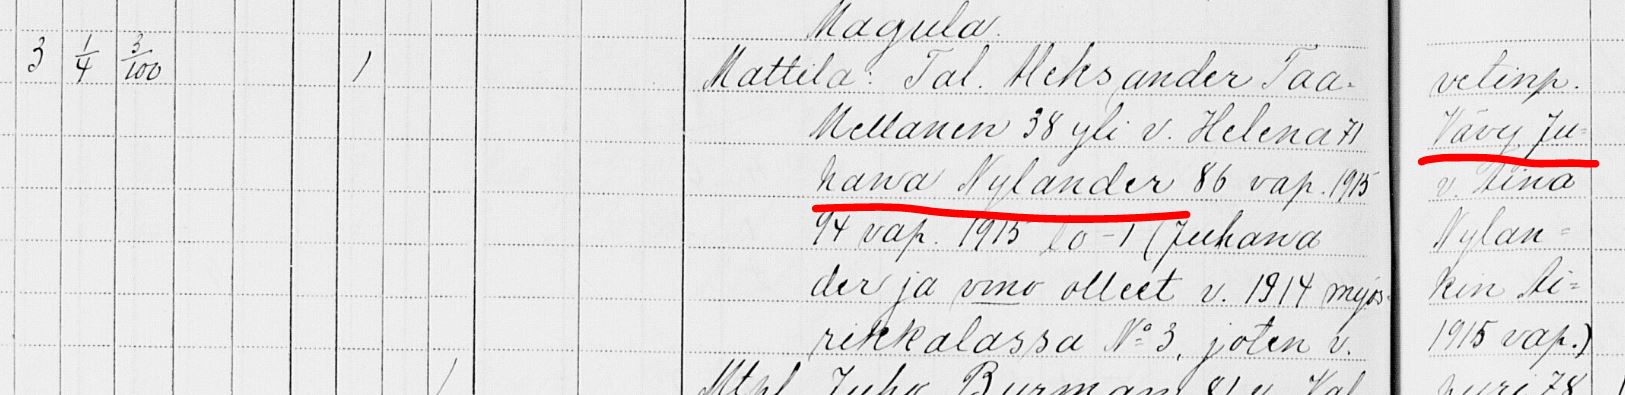 Magula.
3 1/4 3/100 1 Mattila: Tal. Aleksander Taa- vetinp.
Mellanen 38 yli v. Helena 71 Vävy Ju=
hana Nylander 86 vap. 1915 v. Aina
94 vap. 1915 lo-1 (Juhana Nylan=
der ja vmo olleet v. 1914 myös- kin Ai=
rikkalassa No 3, joten v. 1915 vap.)
1 Mtpl. Juho Burman 81 v. Val puri 78